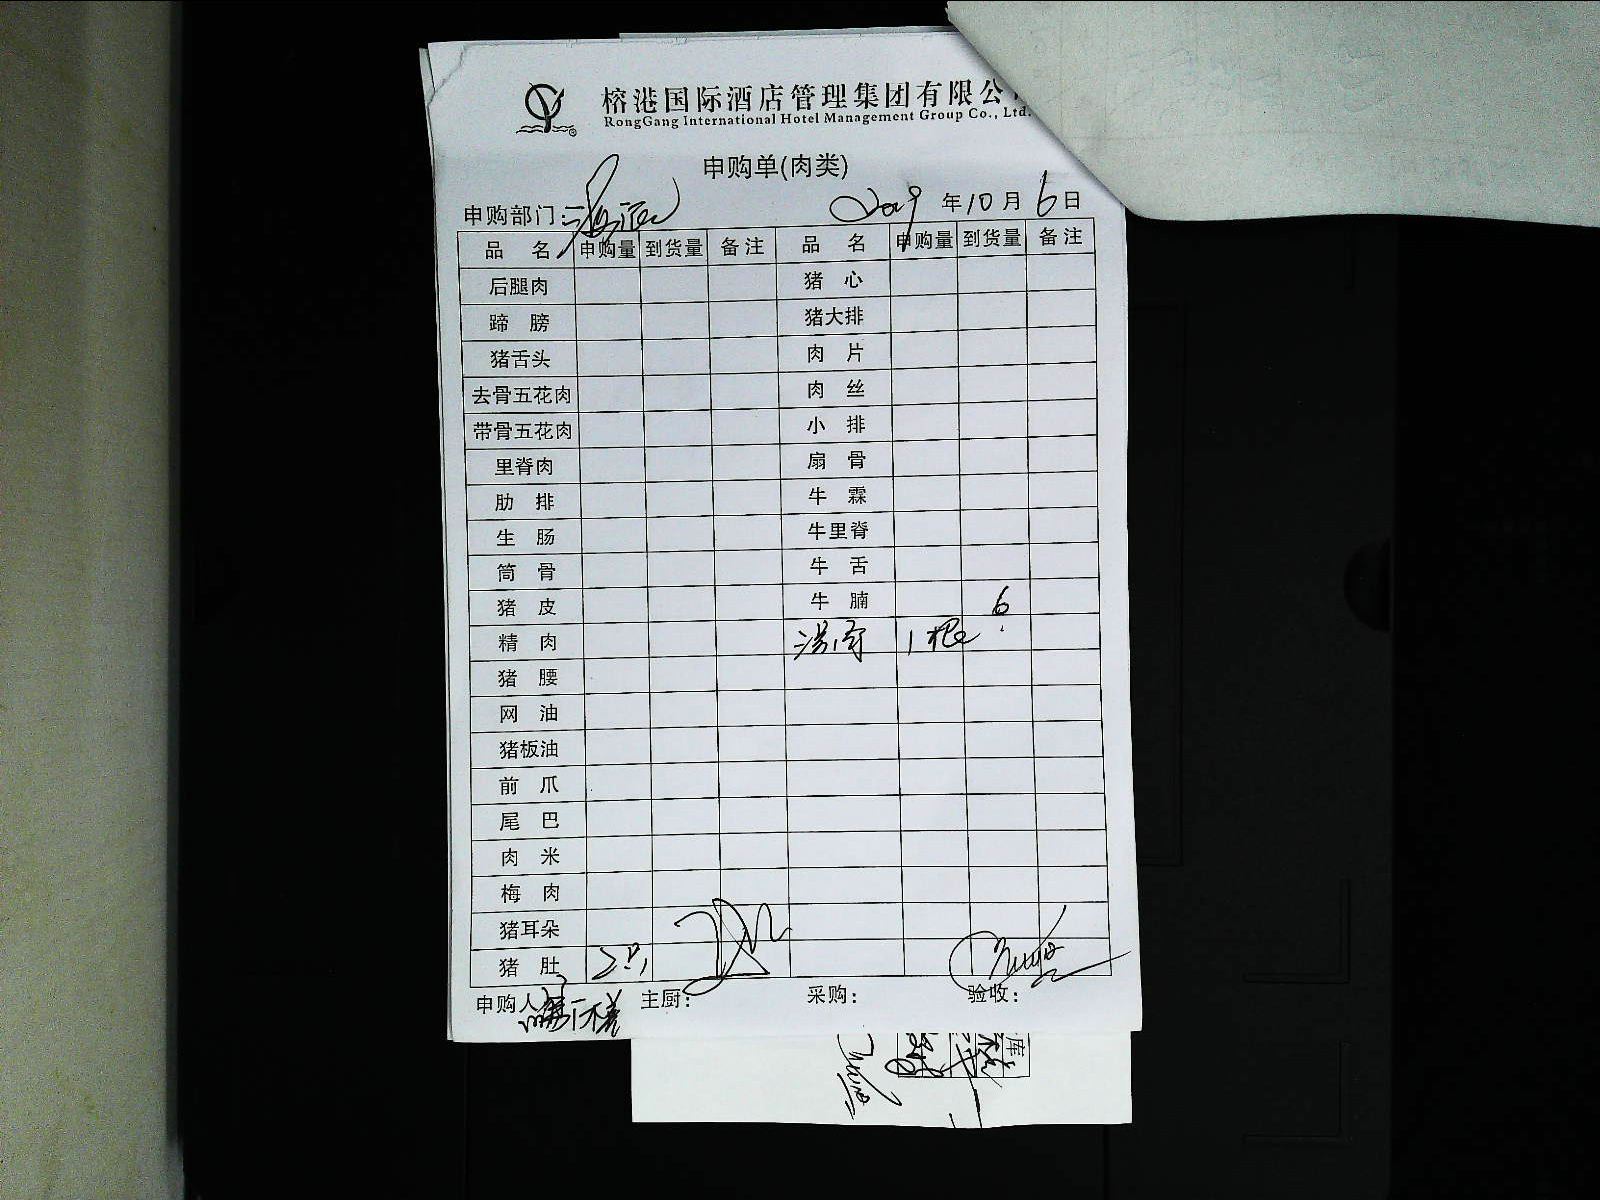 榕港国际酒店管理集团有限公
RongGang International Hotel Management Group Co., Ltd.
申购单(肉类)
申购部门: 2019 年 10 月 6 日
品 名 申购量 到货量 备注 品 名 申购量 到货量 备注
后腿肉 猪 心
蹄 膀 猪大排
猪舌头 肉 片
去骨五花肉 肉 丝
带骨五花肉 小 排
里脊肉 扇 骨
肋 排 牛 霖
生 肠 牛里脊
筒 骨 牛 舌
猪 皮 牛 腩
精 肉 汤骨 1根 6
猪 腰
网 油
猪板油
前 爪
尾 巴
肉 米
梅 肉
猪耳朵
猪 肚 2只
申购人 主厨: 采购: 验收:
库